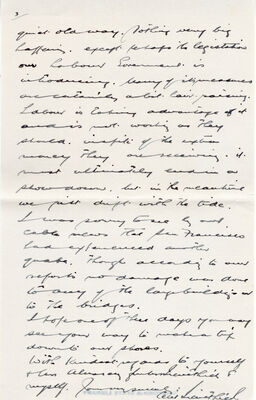 3
quiet old way. Nothing very big
happening. except perhaps the legislation
our Labour Government is
introducing. Many of its measures
are certainly a bit hair raising.
Labour is taking advantage of it
and is not working as they
should. in spite of the extra
money they are receiving. it
must ultimately end in a
show down. but in the meantime
we just drift with the tide.
I was sorry to see by our
cable news that San Francisco
had experienced another
quake. though according to our
reports no damage was done
to any of the large buildings or
to the bridges.
I hope one of these days you may
see your way to make a trip
down to our shores.
With kindest regards to yourself
&
myself. Yours sincerely